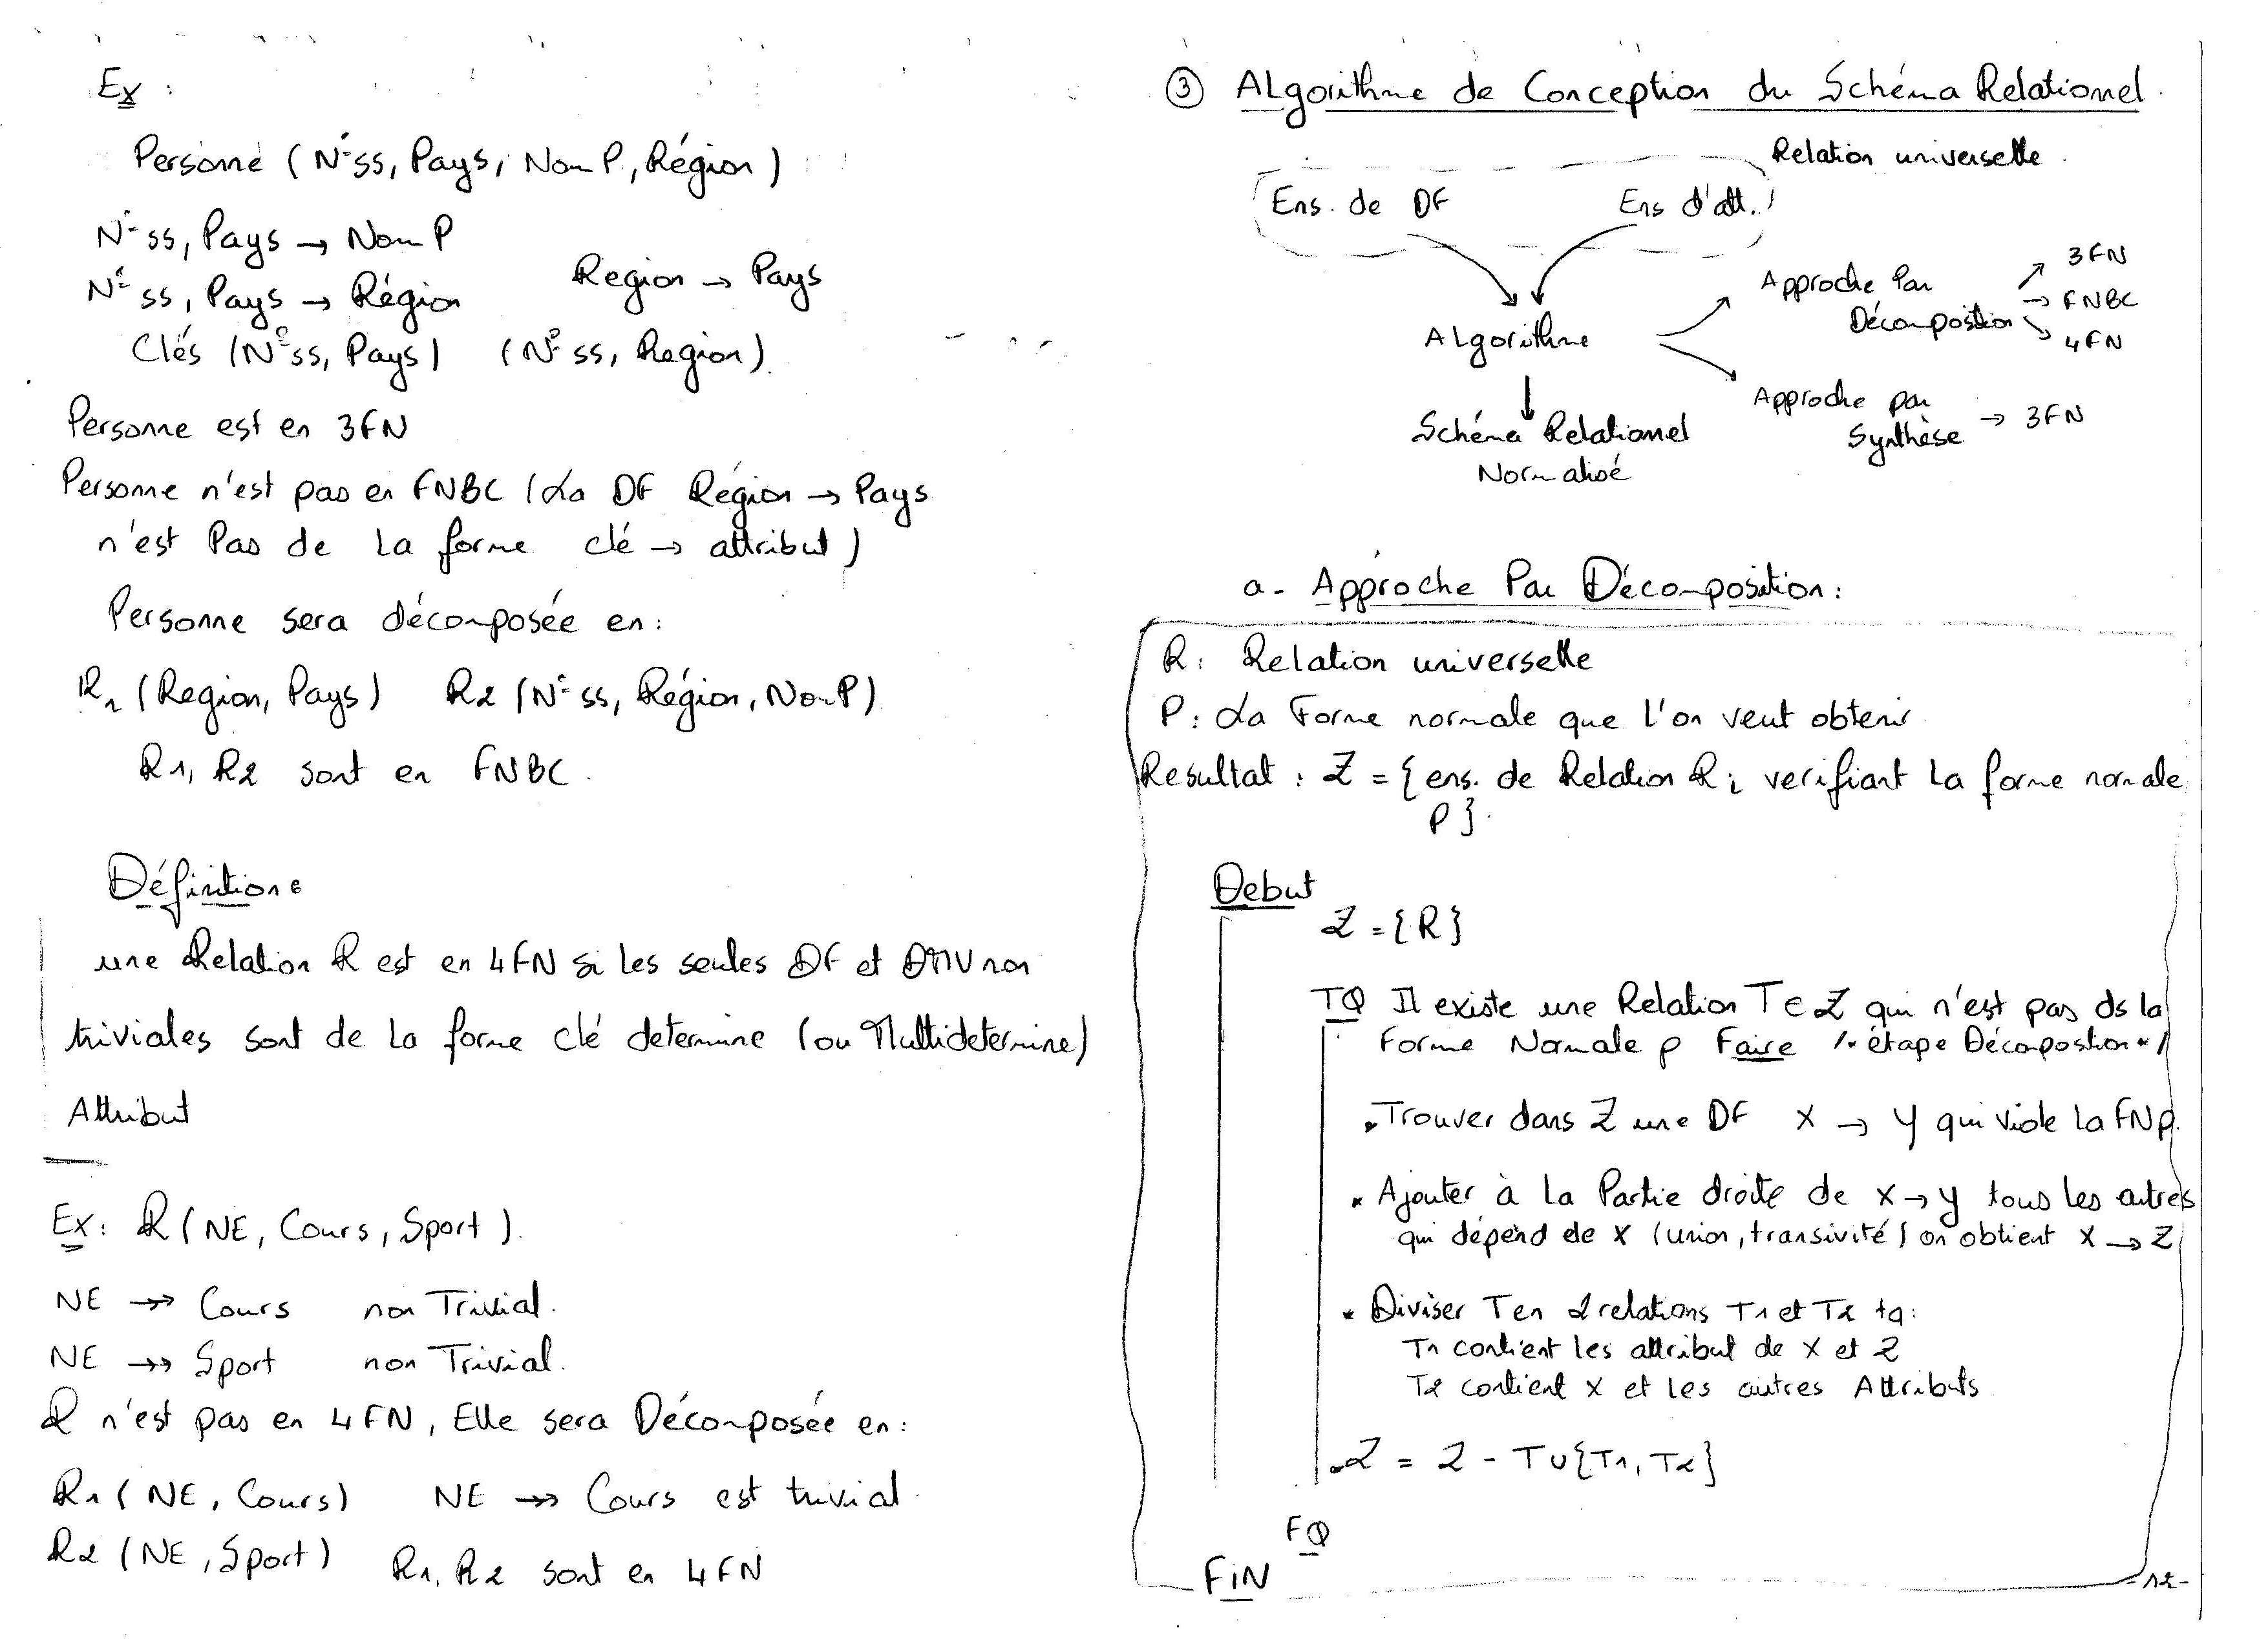 Ex :
Personne (N°ss, Pays, NomP, Région)
N°ss, Pays → NomP
N°ss, Pays → Région
Region → Pays
Clés (N°ss, Pays) (N°ss, Region).
Personne est en 3FN
Personne n'est pas en FNBC (La DF Région → Pays
n'est Pas de La forme clé → attribut)
Personne sera décomposée en :
R1 (Region, Pays) R2 (N°ss, Région, NomP)
R1, R2 sont en FNBC.
Définition :
une Relation R est en 4FN si les seules DF et DMV non
triviales sont de la forme clé determine (ou Multidetermine)
Attribut
Ex : R (NE, Cours, Sport).
NE →→ Cours non Trivial.
NE →→ Sport non Trivial.
R n'est pas en 4FN, Elle sera Décomposée en :
R1 (NE, Cours) NE →→ Cours est trivial.
R2 (NE, Sport) R1, R2 sont en 4FN
③ ALgorithme de Conception du Schéma Relationnel.
Relation universelle.
Ens. de DF Ens d'att.
Algorithme
Approche Par
Décomposition
→ 3FN
→ FNBC
→ 4FN
Approche par
Synthèse → 3FN
Schéma Relationnel
Normalisé
a- Approche Par Décomposition :
R : Relation universelle
P : La Forme normale que l'on veut obtenir.
Resultat : Z = {ens. de Relation Ri verifiant la forme normale
P}.
Debut
Z = {R}
TQ Il existe une Relation T ∈ Z qui n'est pas ds la
Forme Normale P Faire /* étape Décompostion */
• Trouver dans Z une DF X → Y qui viole la FNP.
* Ajouter à la Partie droite de X → Y tous les autres
qui dépend de X (union, transivité) on obtient X → Z
* Diviser T en 2 relations T1 et T2 tq :
T1 contient les attribut de X et Z
T2 contient X et les autres Attributs
. Z = Z - T ∪ {T1, T2}
FQ
FIN
-12-